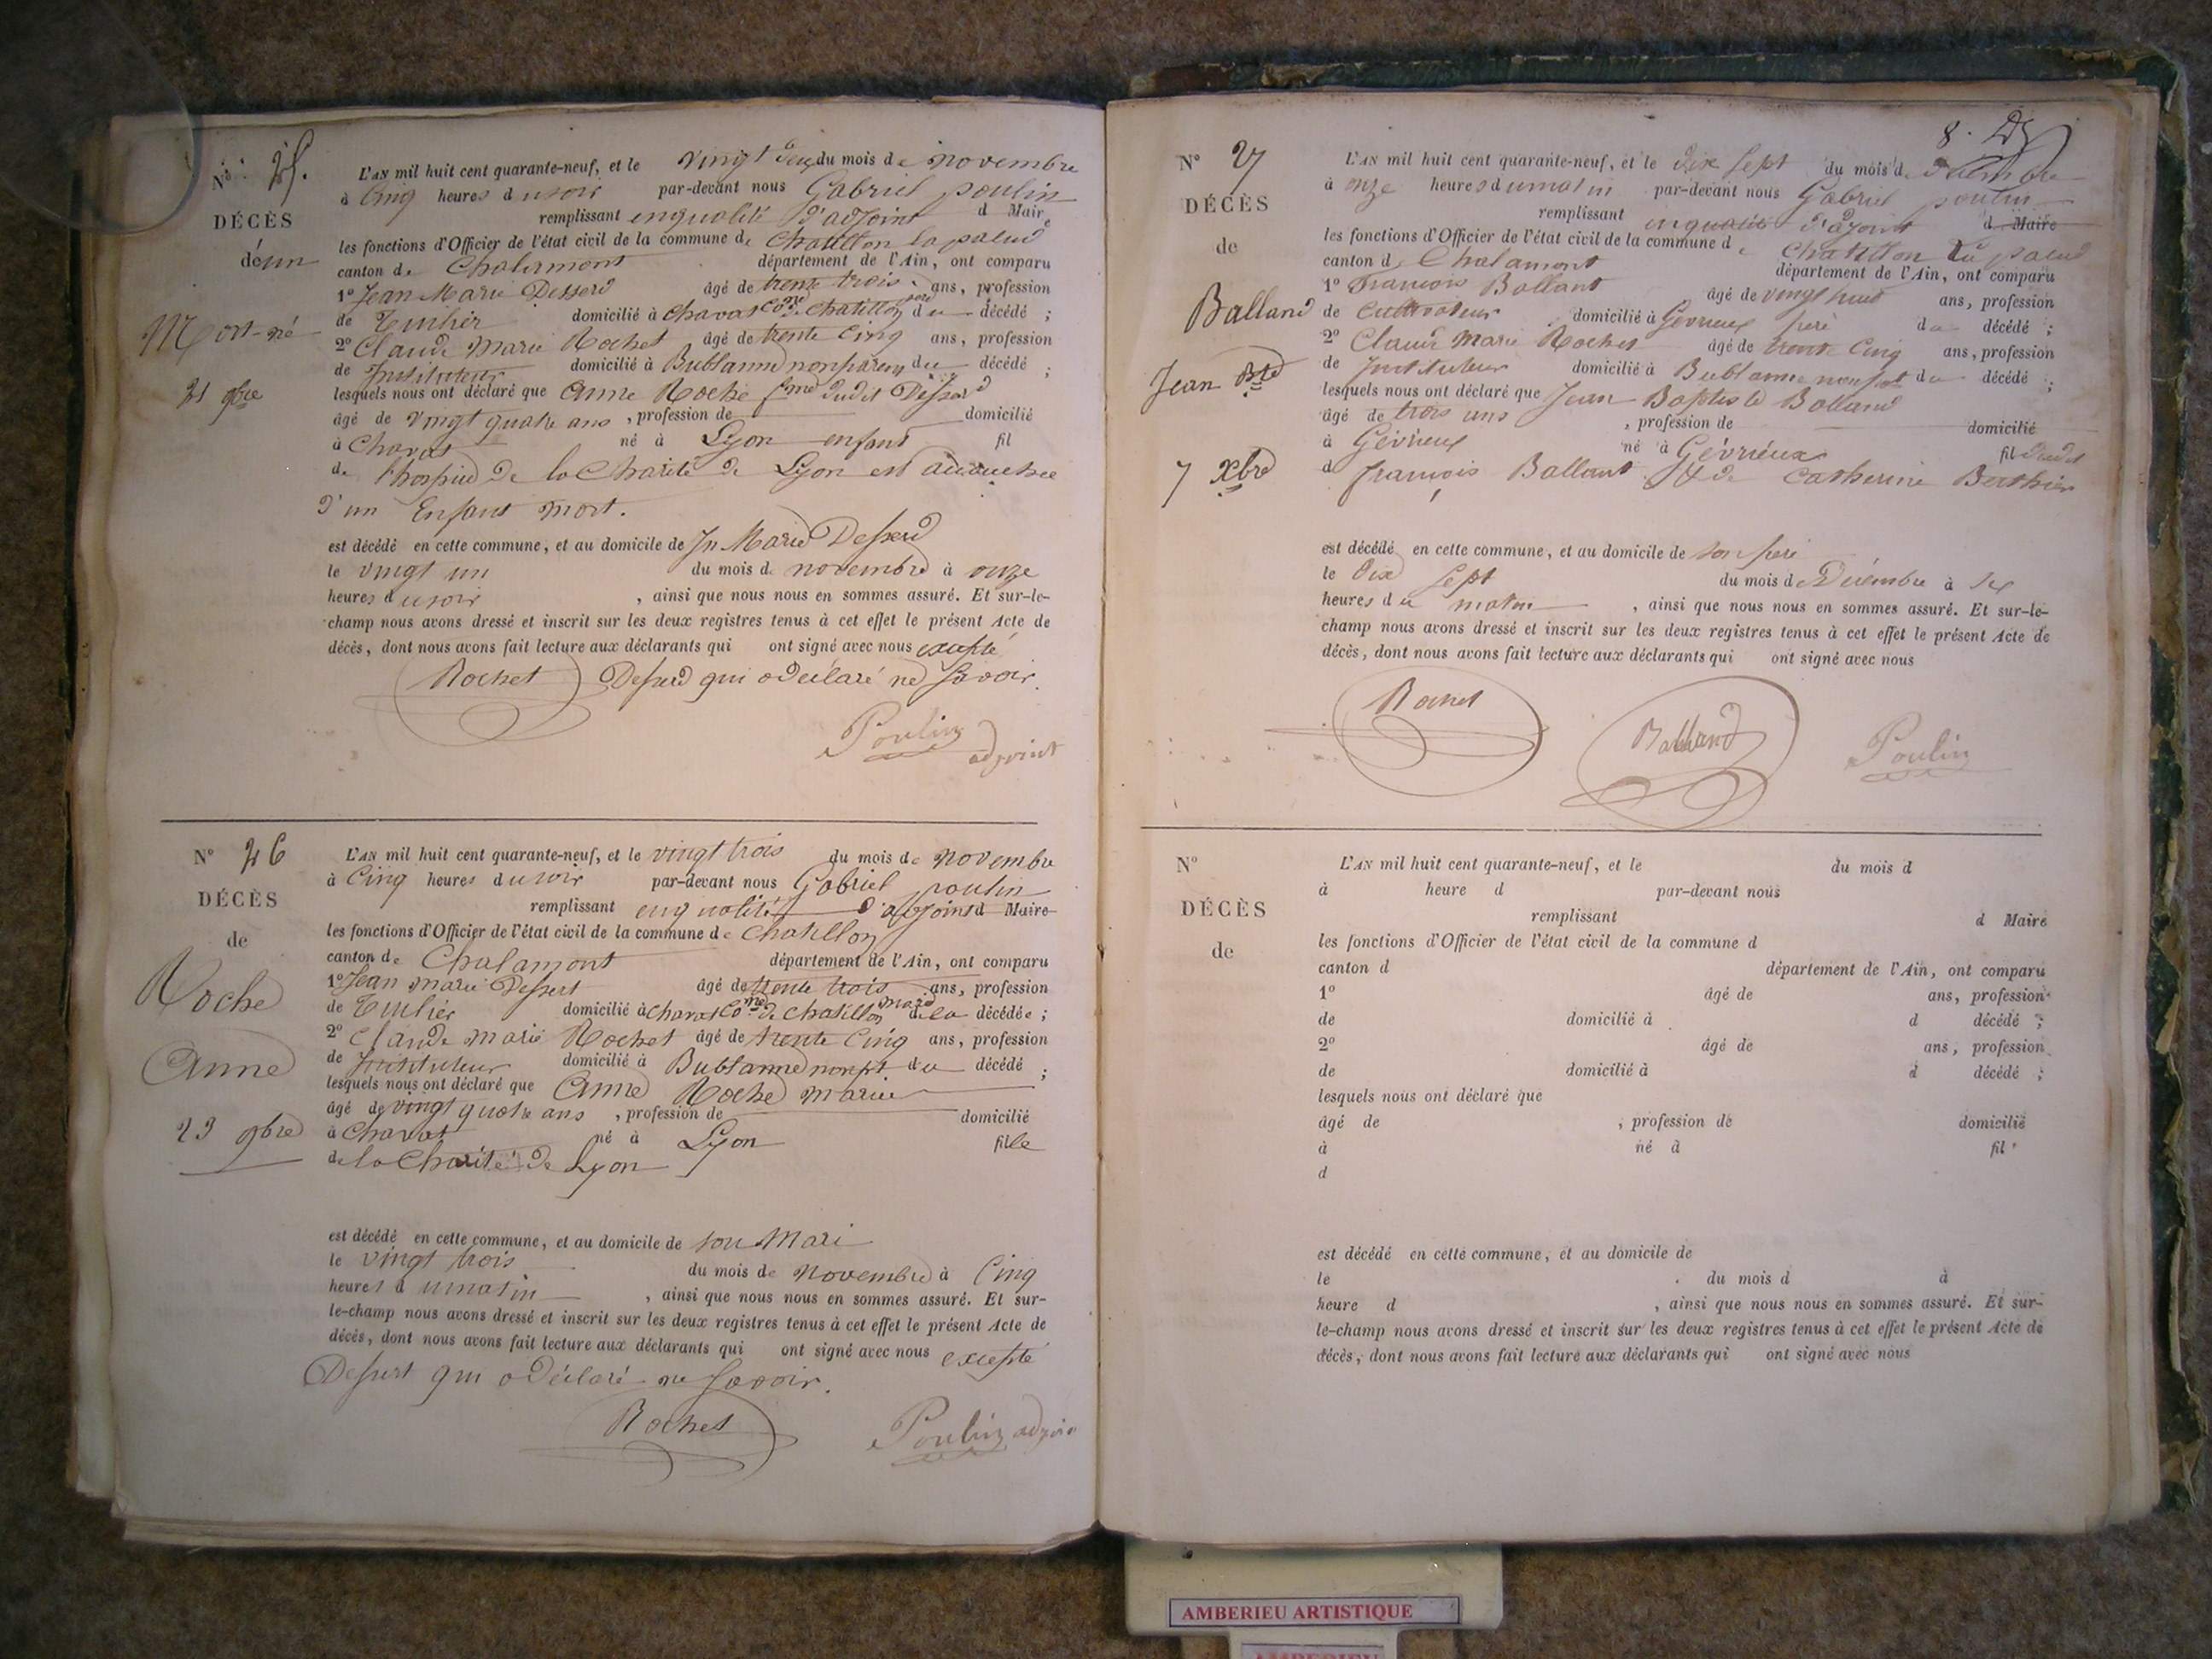 N° 25.
DÉCÈS
d'un
Mort-né
21 9bre
L'AN mil huit cent quarante-neuf, et le vingt deux du mois de novembre
à Cinq heures du soir par-devant nous Gabriel poulin
remplissant en qualité d'adjoint d Maire
les fonctions d'Officier de l'état civil de la commune de Chatillon la palud
canton de Chalamont département de l'Ain, ont comparu
1° Jean Marie Desserd âgé de trente trois ans, profession
de Tuilier domicilié à Chavas Cone de Chatillon du père décédé ;
2° Claude Marie Rochet âgé de trente Cinq ans, profession
de Instituteur domicilié à Bublanne non parent du décédé ;
lesquels nous ont déclaré que Anne Roche fme dudit Desserd
âgé de vingt quatre ans , profession de domicilié
à Chavas né à Lyon enfant fil
de l'hospice de la Charité de Lyon est accouchée
d'un Enfant mort.
est décédé en cette commune, et au domicile de Jn Marie Desserd
le vingt un du mois de novembre à onze
heures du soir , ainsi que nous nous en sommes assuré. Et sur-le-
champ nous avons dressé et inscrit sur les deux registres tenus à cet effet le présent Acte de
décès, dont nous avons fait lecture aux déclarants qui ont signé avec nous excepté
Rochet Desserd qui a déclaré ne savoir.
Poulin adjoint
N° 26
DÉCÈS
de
Roche
Anne
23 9bre
L'AN mil huit cent quarante-neuf, et le vingt trois du mois de novembre
à Cinq heures du soir par-devant nous Gabriel poulin
remplissant en qualité d'adjoint d Maire
les fonctions d'Officier de l'état civil de la commune de Chatillon
canton de Chalamont département de l'Ain, ont comparu
1° Jean marie Dessert âgé de trente trois ans, profession
de Tuilier domicilié à Chavas Cone de Chatillon mari de la décédée ;
2° Claude marie Rochet âgé de trente Cinq ans, profession
de Instituteur domicilié à Bublanne non pt du décédé ;
lesquels nous ont déclaré que Anne Roche mariée
âgé de vingt quatre ans , profession de domicilié
à Chavas né à Lyon fille
de la Charité de Lyon
est décédé en cette commune, et au domicile de son Mari
le vingt trois du mois de novembre à Cinq
heures du matin , ainsi que nous nous en sommes assuré. Et sur-
le-champ nous avons dressé et inscrit sur les deux registres tenus à cet effet le présent Acte de
décès, dont nous avons fait lecture aux déclarants qui ont signé avec nous excepté
Dessert qui a déclaré ne savoir.
Rochet Poulin adjoin
8.
N° 27
DÉCÈS
de
Balland
Jean Bte
7 Xbre
L'AN mil huit cent quarante-neuf, et le dix sept du mois d décembre
à onze heures du matin par-devant nous Gabriel poulin
remplissant en qualité d'adjoint d Maire
les fonctions d'Officier de l'état civil de la commune de Chatillon la palud
canton d Chalamont département de l'Ain, ont comparu
1° Francois Balland âgé de vingt huit ans, profession
de Cultivateur domicilié à Gevrieux père du décédé ;
2° Claude Marie Rochet âgé de trente Cinq ans, profession
de Instituteur domicilié à Bublanne non pt du décédé ;
lesquels nous ont déclaré que Jean Baptiste Balland
âgé de trois ans , profession de domicilié
à Gévrieux né à Gévrieux fil dudit
d françois Balland & de Catherine Berthier
est décédé en cette commune, et au domicile de son père
le dix sept du mois de Décembre à six
heures du matin , ainsi que nous nous en sommes assuré. Et sur-le-
champ nous avons dressé et inscrit sur les deux registres tenus à cet effet le présent Acte de
décès, dont nous avons fait lecture aux déclarants qui ont signé avec nous
Rochet Balland Poulin
N°
DÉCÈS
de
L'AN mil huit cent quarante-neuf, et le du mois d
à heure d par-devant nous
remplissant d Maire
les fonctions d'Officier de l'état civil de la commune d
canton d département de l'Ain, ont comparu
1° âgé de ans, profession
de domicilié à d décédé ;
2° âgé de ans, profession
de domicilié à d décédé ;
lesquels nous ont déclaré que
âgé de , profession de domicilié
à né à fil
d
est décédé en cette commune, et au domicile de
le du mois d à
heure d , ainsi que nous nous en sommes assuré. Et sur-
le-champ nous avons dressé et inscrit sur les deux registres tenus à cet effet le présent Acte de
décès, dont nous avons fait lecture aux déclarants qui ont signé avec nous
AMBERIEU ARTISTIQUE
AMBERIEU